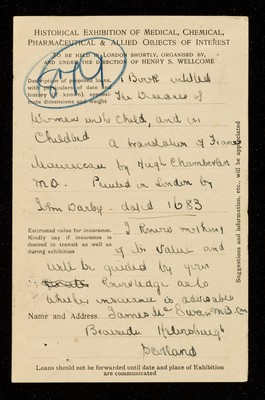 HISTORICAL EXHIBITION OF MEDICAL, CHEMICAL,
PHARMACEUTICAL & ALLIED OBJECTS OF INTEREST
TO BE HELD IN LONDON SHORTLY, ORGANISED BY,
AND UNDER THE DIRECTION OF HENRY S. WELLCOME
Description of proposed loans, Book intitled
with particulars of date and
history (if known), approxi- The Diseases of
mate dimensions and weight
Women with Child, and in
Childbed
A translation of Francis
Mauriceau by Hugh Chamberlen
M.D. Printed in London by
John Darby. dated 1683
Estimated value for insurance. I know nothing
Kindly say if insurance is
desired in transit as well as of its value and
during exhibition
will be guided by your
knowledge as to
whether insurance is advisable
Name and Address James McEwan M.B. Cm
Braeside Helensburgh
Scotland
Loans should not be forwarded until date and place of Exhibition
are communicated
Suggestions and information, etc., will be appreciated